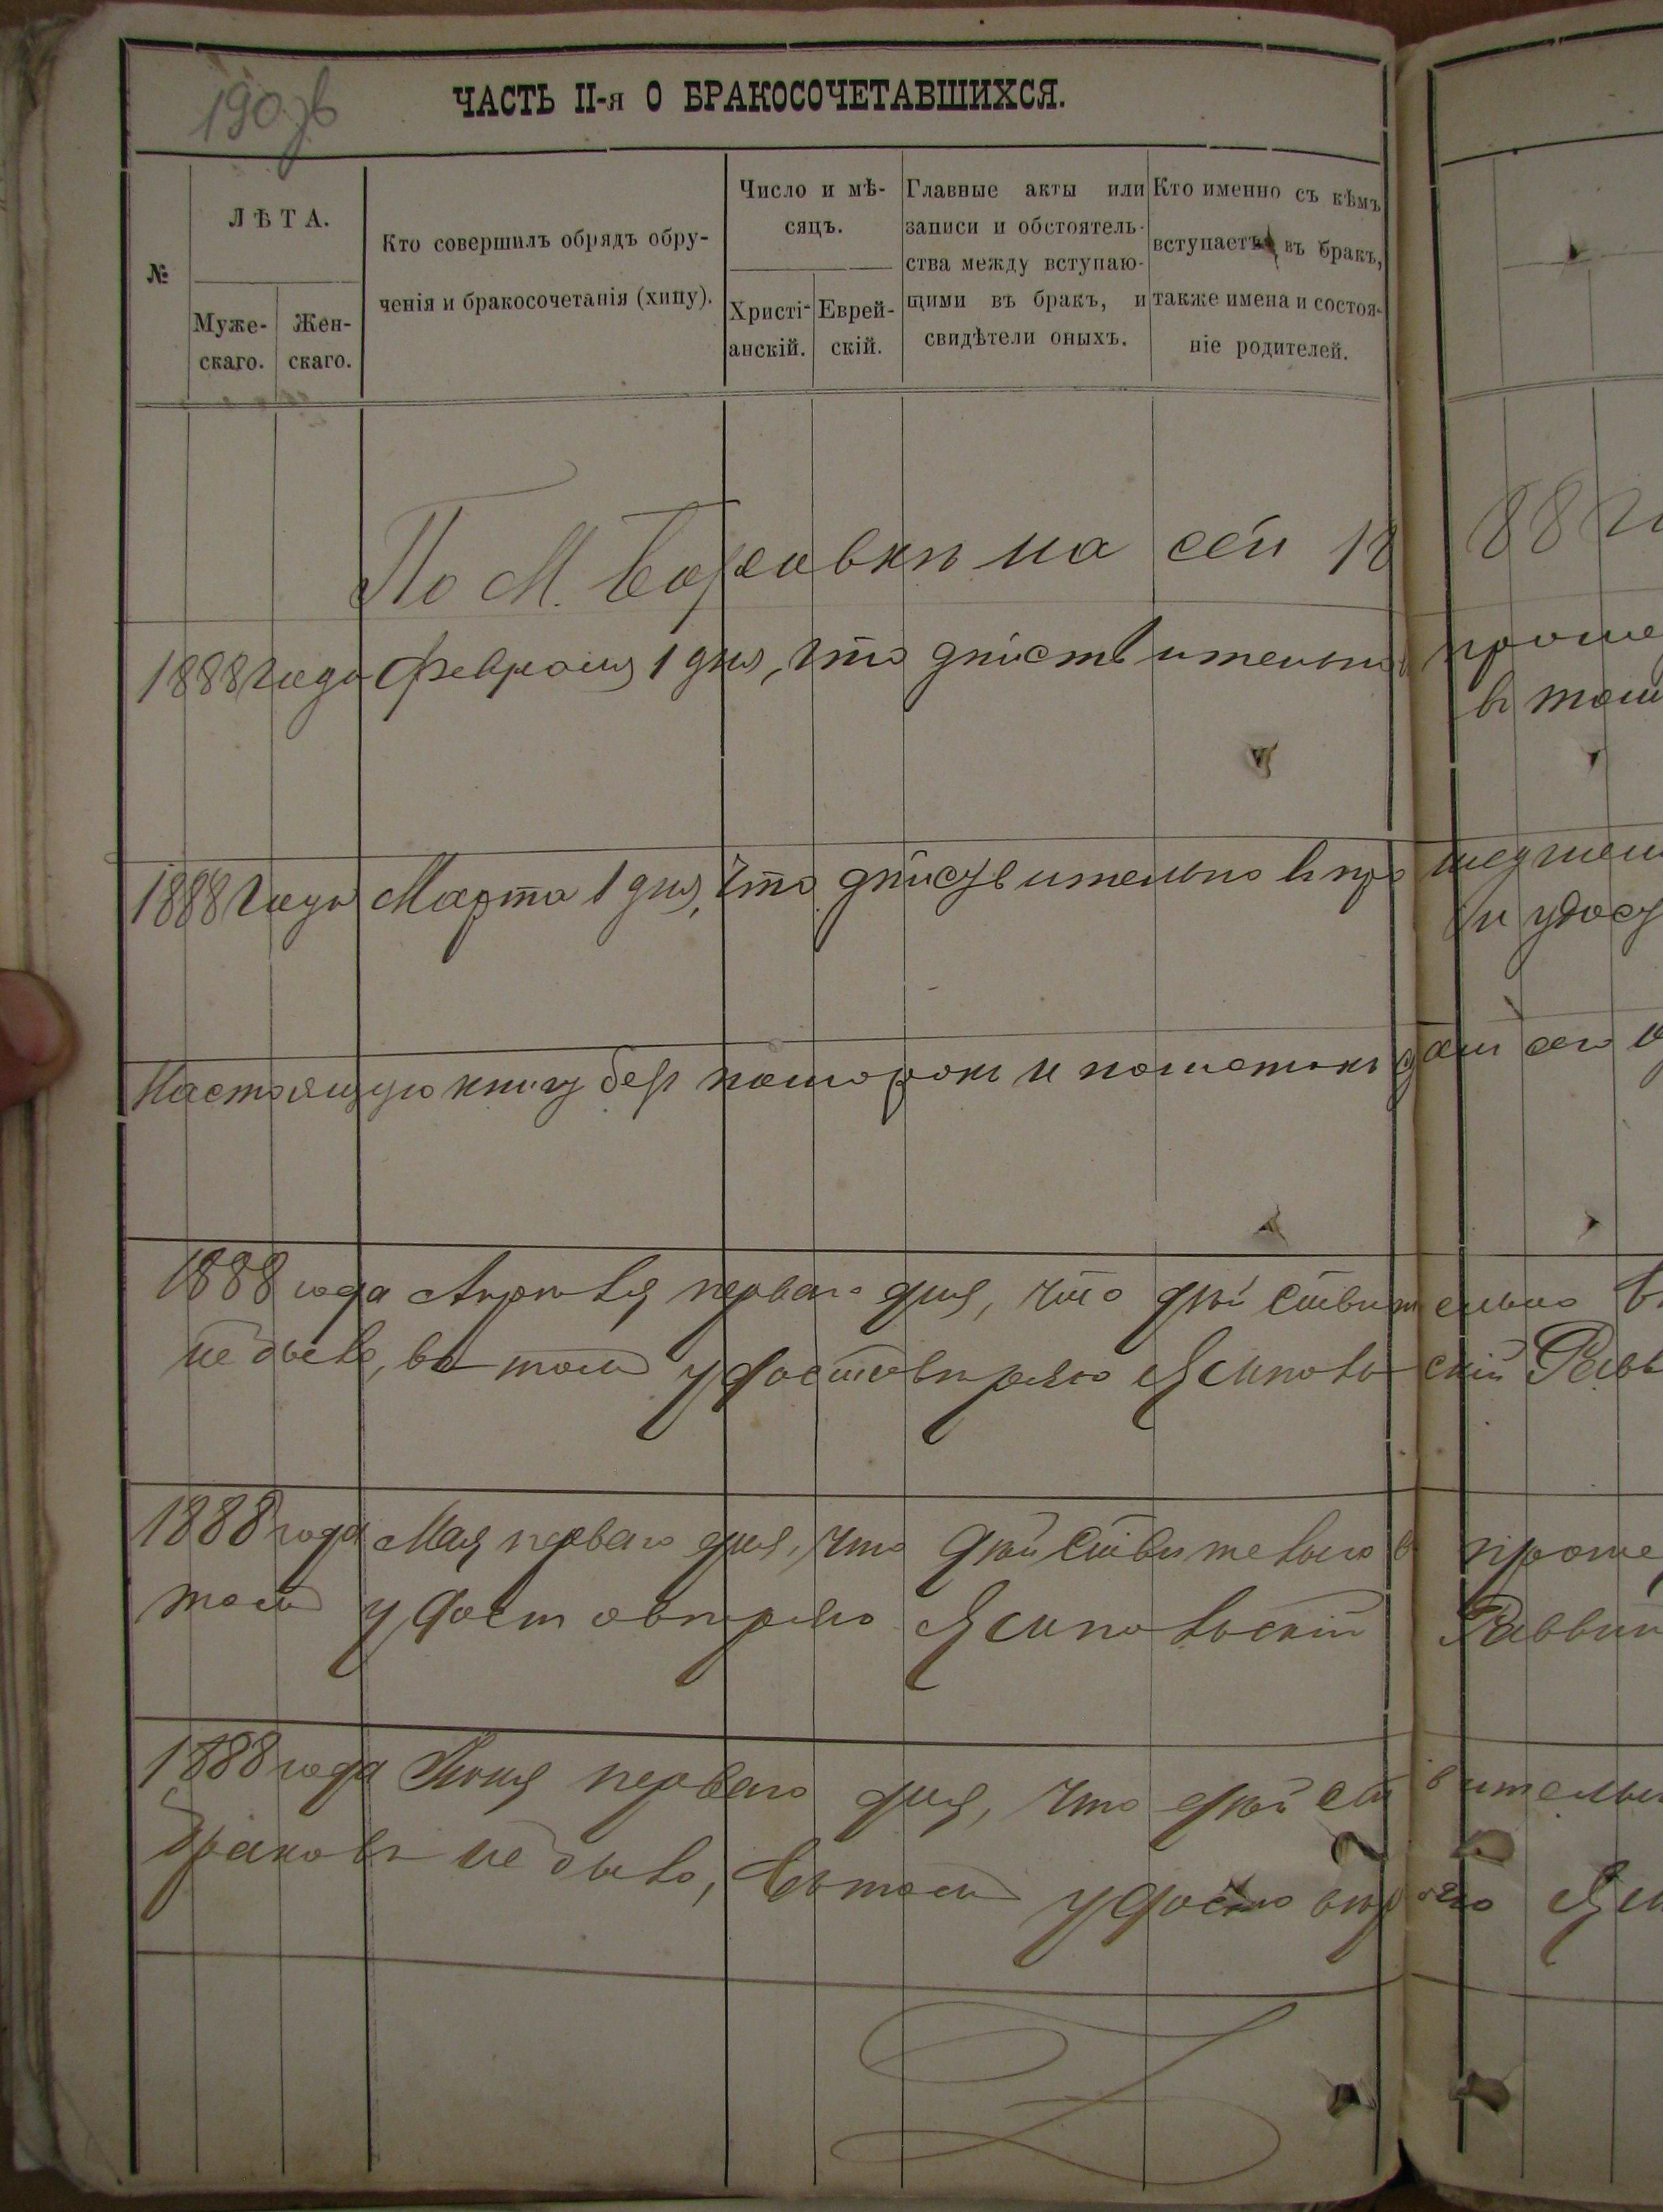 190 об
ЧАСТЬ II-я О БРАКОСОЧЕТАВШИХСЯ.
№
ЛѢТА.
Муже-
скаго.
Жен-
скаго.
Кто совершилъ обрядъ обру-
ченія и бракосочетанія (хипу).
Число и мѣ-
сяцъ.
Христі-
анскій.
Еврей-
скій.
Главные акты или
записи и обстоятель-
ства между вступаю-
щими въ бракъ, и
свидѣтели оныхъ.
Кто именно съ кѣмъ
вступаетъ въ бракъ,
также имена и состоя-
ніе родителей.
По М. на сей 18 88 го
1888 года Февраля 1 дня, что дѣйствительно въ проше
въ томъ
1888 года Марта 1 дня, что дѣйствительно въ про шедшемъ
и удост
Настоящую книгу безъ помарокъ и далъ сего
1888 года Апрѣля перваго дня, что дѣйствительно въ
не было, въ томъ удостовѣряю Ясиповскій Равв
1888 года Мая перваго дня, что дѣйствительно въ проше
томъ удостовѣряю Ясиповскій Раввин
1888 года Іюня перваго дня, что дѣйствительн
браковъ не было, въ томъ удостовѣряю Яси